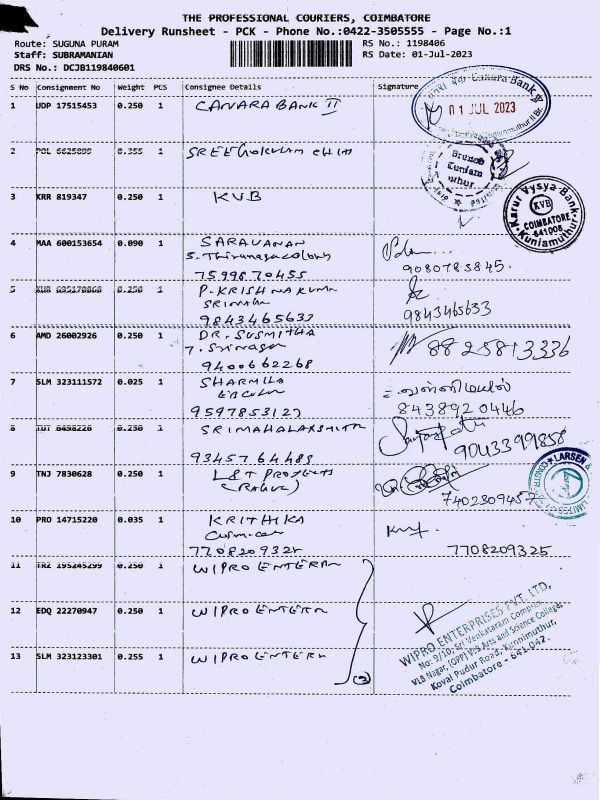 THE PROFESSIONAL COURIERS, COIMBATORE
Delivery Runsheet - PCK - Phone No.:0422-3505555 - Page No.:1
Route: SUGUNA PURAM RS No.: 1198406
Staff: SUBRAMANIAN RS Date: 01-Jul-2023
DRS No.: DCJB119840601
S No Consignment No Weight PCS Consignee Details Signature
1 UDP 17515453 0.250 1 CANARA BANK II
Canara Bank
01 JUL 2023
2 POL 6625899 0.355 1 SREE GOKULAM CHITS
Branch
Kuniam
uthur.
3 KRR 819347 0.250 1 KVB
Karur Vysya Bank
KVB
COIMBATORE
641008
Kuniamuthur
4 MAA 600153654 0.090 1 SARAVANAN
5. Thirunagar colony
7599870455 9080783845.
5 0.250 1 P. KRISHNAKUMAR
9843465633 9843465633
6 AMD 26002926 0.250 1 DR. SUSMITHA
9400662268 8825813336
7 SLM 323111572 0.025 1 SHARMILA
9597853127 8438920446
8 TUT 6498226 0.230 1 SRIMAHALAKSHMI
9345764483 9043399858
9 TNJ 7830628 0.250 1 L&T PROJECTS
7402309457
LARSEN &
LIMITED
10 PRO 14715220 0.035 1 KRITHIKA
7708209325 7708209325
11 TRZ 195245299 0.250 1 WIPRO ENTERPR
12 EDQ 22270947 0.250 1 WIPRO ENTERPR
13 SLM 323123301 0.255 1 WIPRO ENTERPR
(3)
WIPRO ENTERPRISES PVT. LTD,
No: 9/10, Sri Venkataram Complex,
VLB Nagar, (OPP) VLB Arts and Science College,
Kovai Pudur Road, Kunnimuthur,
Coimbatore - 641 042.